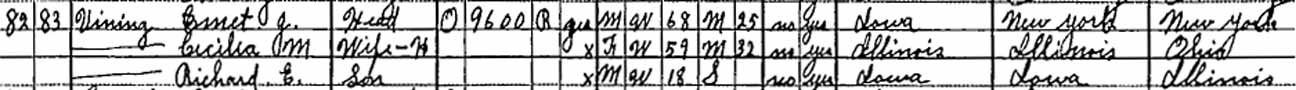 82 83 Vining Emet J. Head O 9600 R yes M W 68 M 25 no yes Iowa New York New York
Cecilia M Wife-H x F W 59 M 32 no yes Illinois Illinois Ohio
Richard E. Son x M W 18 S no yes Iowa Iowa Illinois